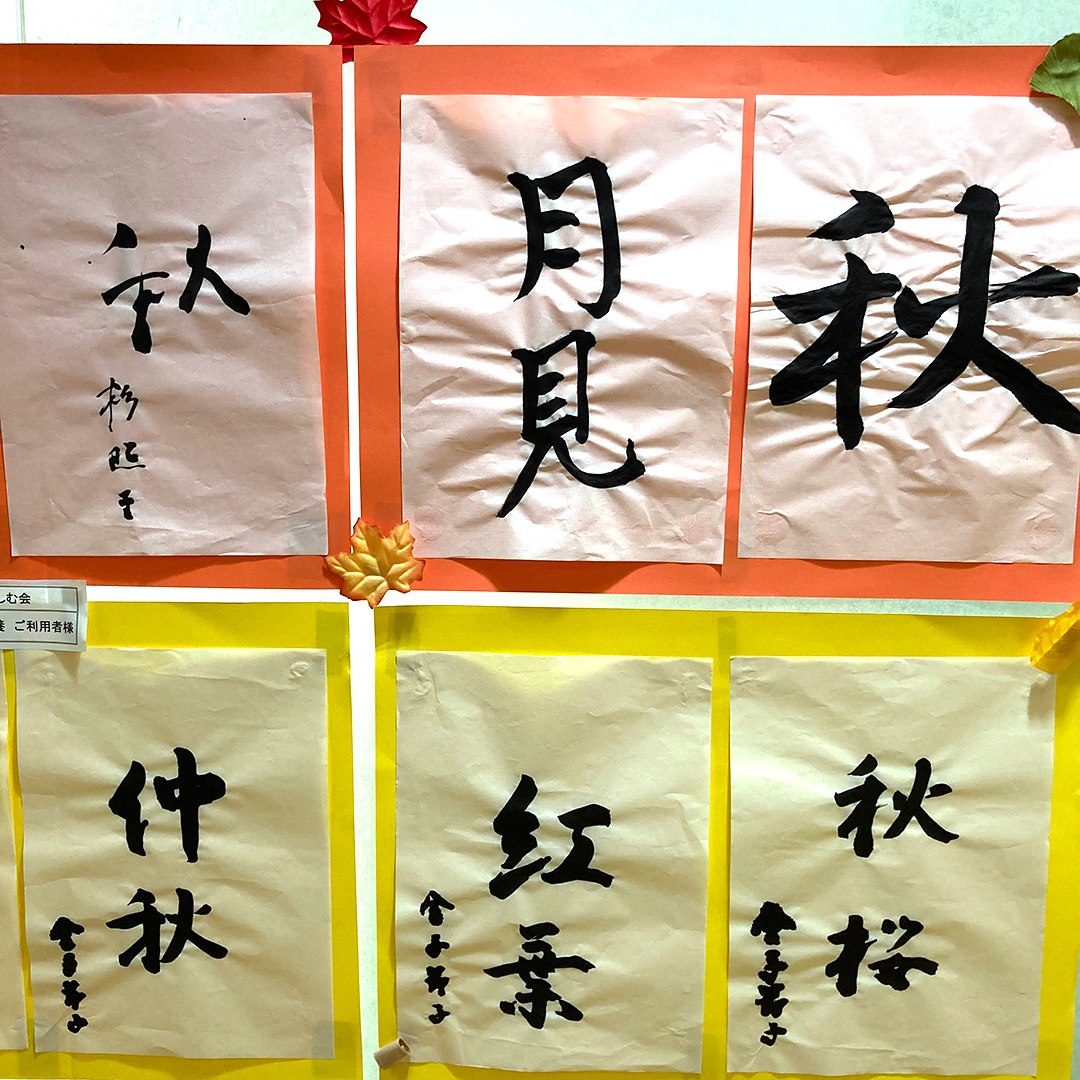 秋
杉
照
子
月
見
秋
しむ会
ご利用者様
仲
秋
金子芳子
紅
葉
金子芳子
秋
桜
金子芳子